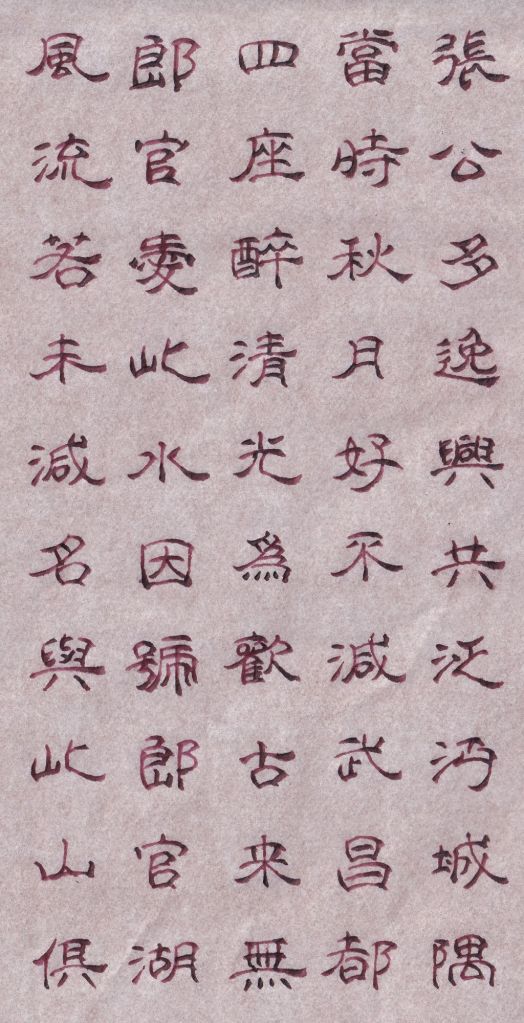 張公多逸興共泛沔城隅
當時秋月好不減武昌都
四座醉清光爲歡古来無
郎官愛此水因號郎官湖
風流若未減名與此山俱